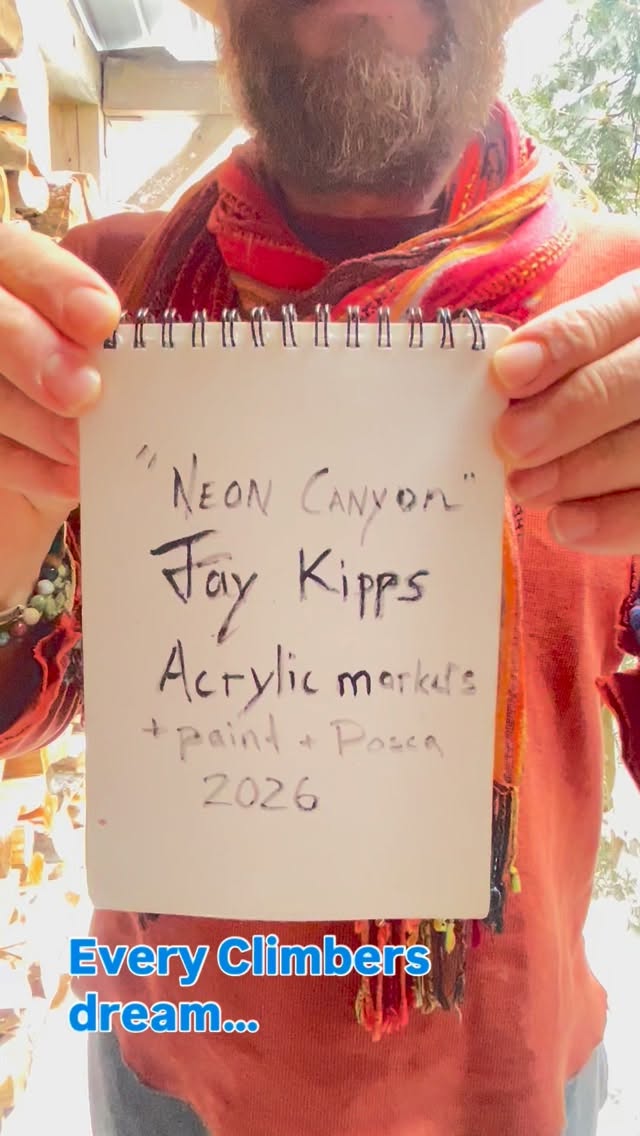 "NEON CANYON"
Jay Kipps
Acrylic markers
+ paint + Posca
2026
Every Climbers
dream...